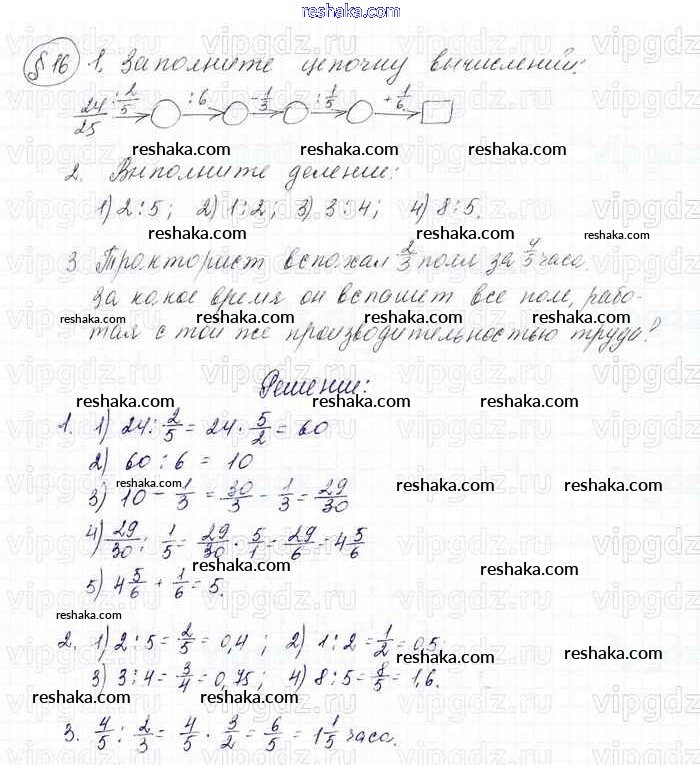 reshaka.com
§16 1. Заполните цепочку вычислений:
24/25 :2/5 :6 -1/3 :1/5 +1/6
reshaka.com reshaka.com reshaka.com
2. Выполните деление:
1) 2:5; 2) 1:2; 3) 3:4; 4) 8:5.
reshaka.com reshaka.com reshaka.com
3. Тракторист вспахал 2/3 поля за 4/5 часа.
За какое время он вспашет все поле, рабо-
reshaka.com reshaka.com reshaka.com
тая с той же производительностью труда?
Решение:
reshaka.com reshaka.com reshaka.com
1. 1) 24:2/5 = 24·5/2 = 60
2) 60:6 = 10
reshaka.com reshaka.com reshaka.com
3) 10 - 1/3 = 30/3 - 1/3 = 29/30
4) 29/30 : 1/5 = 29/30 · 5/1 = 29/6 = 4 5/6
reshaka.com reshaka.com
5) 4 5/6 + 1/6 = 5.
reshaka.com
2. 1) 2:5 = 2/5 = 0,4; 2) 1:2 = 1/2 = 0,5;
reshaka.com reshaka.com
3) 3:4 = 3/4 = 0,75; 4) 8:5 = 8/5 = 1,6.
reshaka.com reshaka.com reshaka.com
3. 4/5 : 2/3 = 4/5 · 3/2 = 6/5 = 1 1/5 часа.
reshaka.com reshaka.com reshaka.com